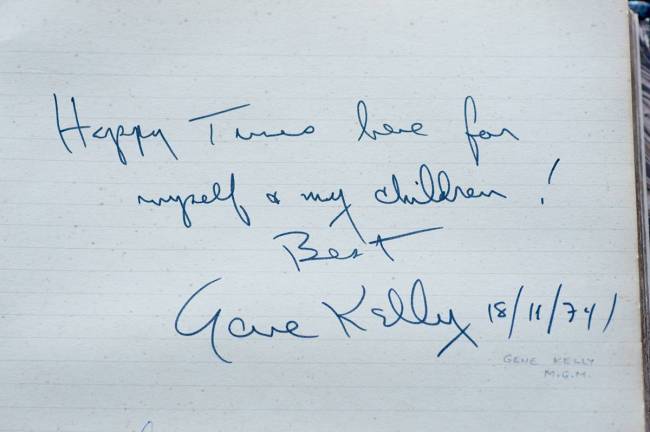 Happy Times here for
myself & my children!
Best
Gene Kelly 18/11/74
GENE KELLY
M.G.M.